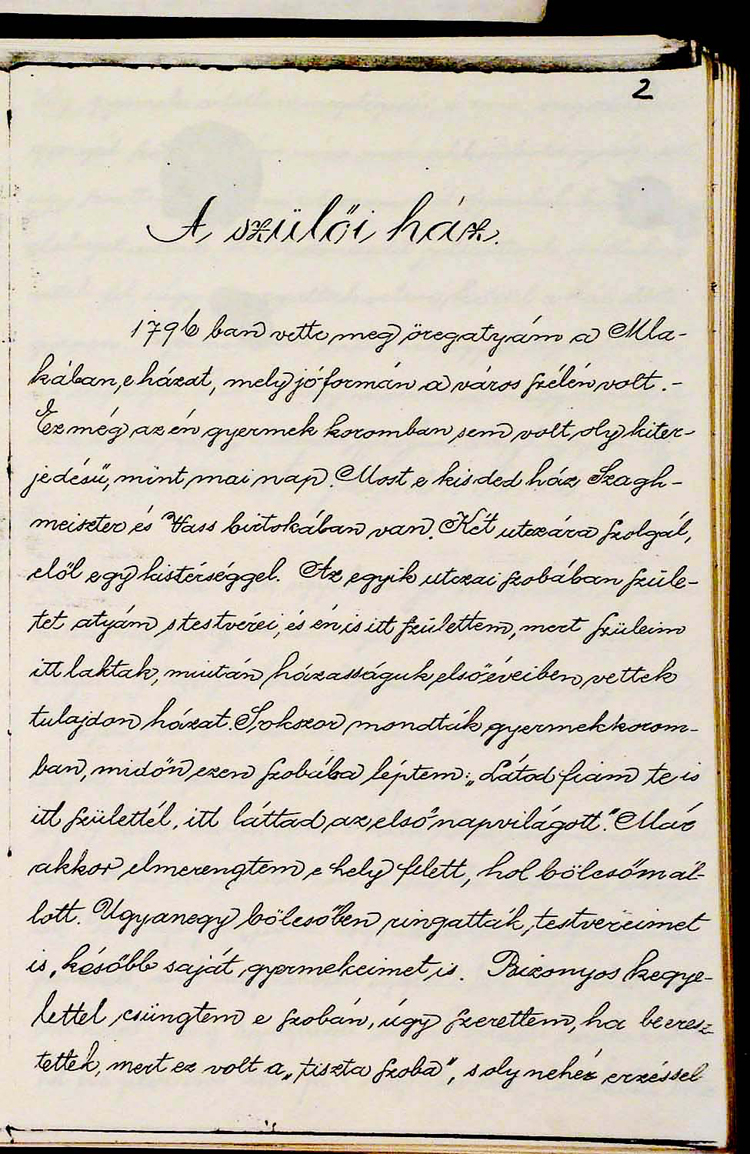 2
A szülői ház.
1796 ban vette meg öregatyám a Mla-
kában, e házat, mely jóformán a város szélén volt. -
Ez még az én gyermek koromban sem volt, oly kiter-
jedésű, mint mai nap. Most e kisded ház Szagh-
meiszter és Vass birtokában van. Két utczára szolgál,
elől egy kistérséggel. Az egyik utczai szobában szüle-
tet atyám s testvérei, és én is itt születtem, mert szüleim
itt laktak, miután házasságuk első éveiben vettek
tulajdon házat. Sokszor mondták gyermek korom-
ban, midőn ezen szobába léptem: „Látod fiam te is
itt születtél, itt láttad az első napvilágott." Már
akkor elmerengtem e hely felett, hol bölcsőm ál-
lott. Ugyanegy bölcsőben ringatták testvéreimet
is, később saját gyermekeimet is. Bizonyos kegye-
lettel csüngtem e szobán, úgy szerettem, ha beeresz
tettek, mert ez volt a „tiszta szoba", s oly nehéz erzéssel